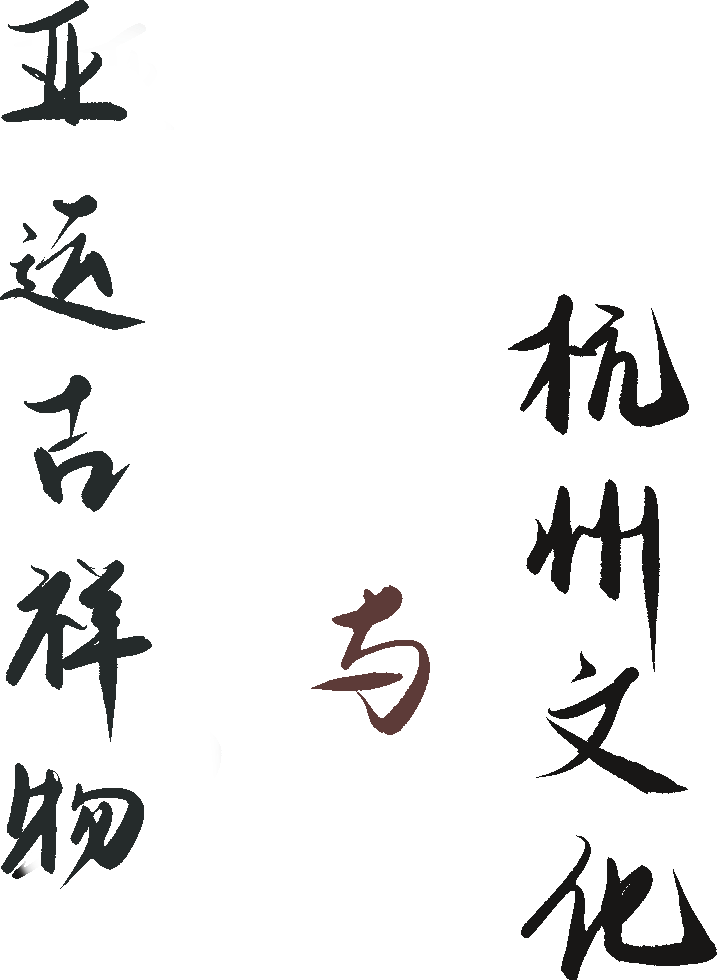 亚运吉祥物
与
杭州文化